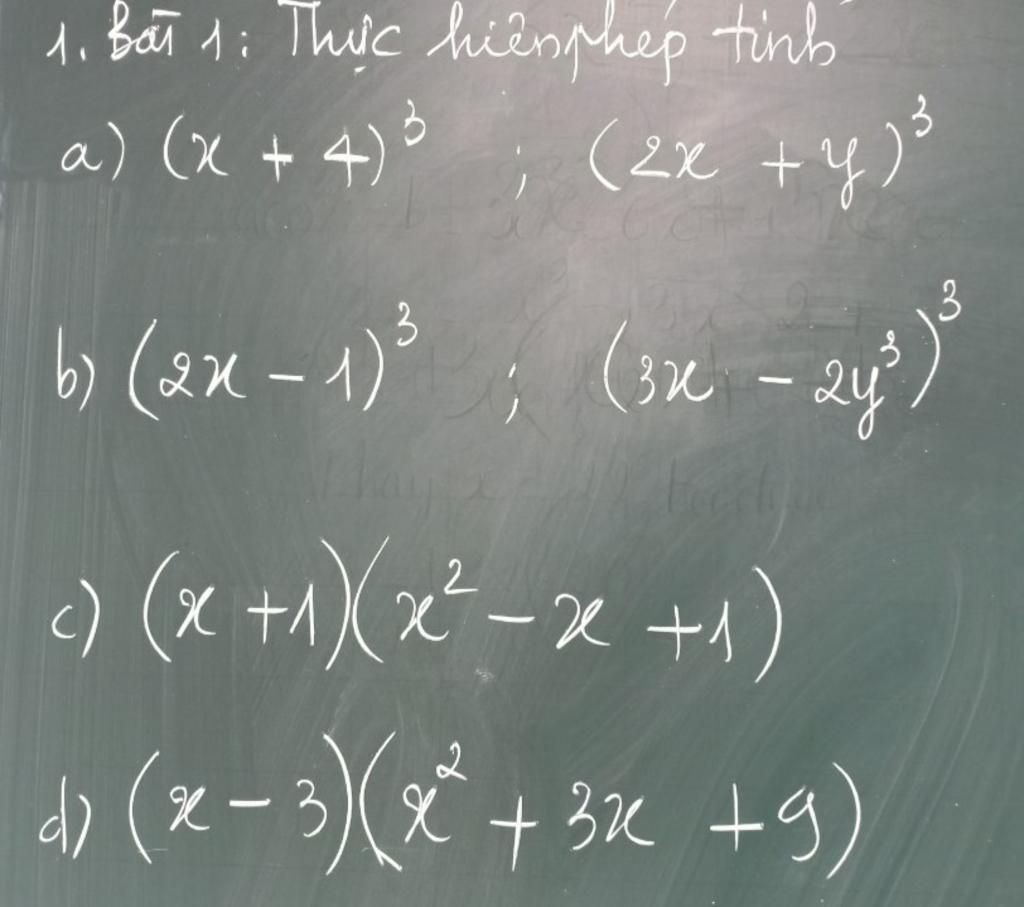 1. Bài 1: Thực hiện phép tính
a) (x + 4)³ ; (2x + y)³
b) (2x - 1)³ ; (3x - 2y³)³
c) (x + 1)(x² - x + 1)
d) (x - 3)(x² + 3x + 9)